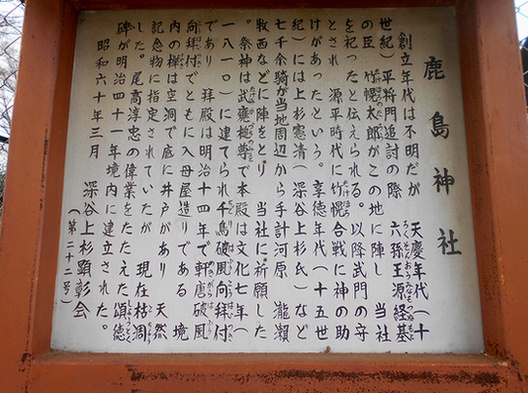 鹿島神社
創立年代は不明だが 天慶年代(十
世紀)平将門追討の際 六孫王源経基
の臣 竹幌太郎がこの地に陣し 当社
を祀ったと伝えられる。以降武門の守
とされ 源平時代に竹幌合戦に神の助
けがあったという。享徳年代(十五世
紀)には上杉憲清(深谷上杉氏)など
七千余騎が当地周辺から手計河原 瀧瀬
牧西などに陣をとり 当社に祈願した
。祭神は武甕槌尊で本殿は文化七年(
一八一〇)に建てられ千鳥破風向拝付
であり 拝殿は明治十四年で軒唐破風
向拝付でともに入母屋造りである 境
内の欅は空洞で底に井戸があり 天然
記念物に指定されていたが 現在枯凋
した。尾高淳忠の偉業をたたえた頌徳
碑が明治四十一年境内に建立された。
昭和六十年三月 深谷上杉顕彰会
(第二十二号)